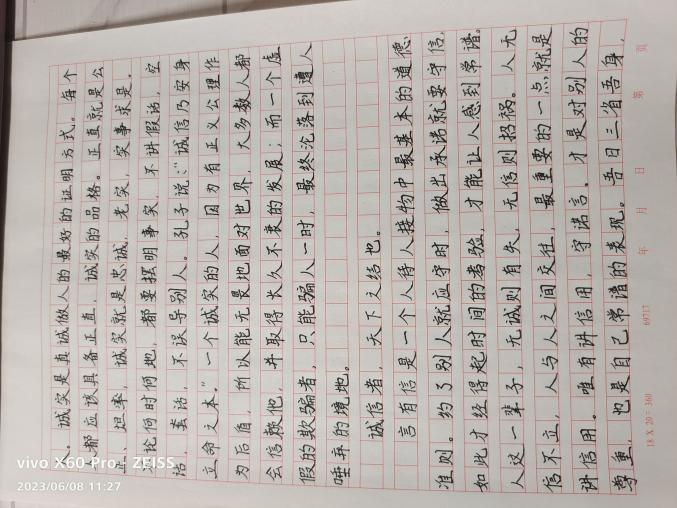 人。诚实是真诚做人的最好的证明方式。每个
人都应该具备正直、诚实的品格。正直就是公
正、坦率，诚实就是忠诚、老实，实事求是。
无论何时何地，都要摆明事实，不讲假话，空
话，套话，不误导别人。孔子说：“诚信乃安身
立命之本。”一个诚实的人，因为有正义公理作
为后盾，所以能无畏地面对世界，大多数人都
会信赖他，并取得长久不衰的发展；而一个虚
假的欺骗者，只能骗人一时，最终沉落到遭人
唾弃的境地。
诚信者，天下之结也。
言有信是一个人待人接物中最基本的道德
准则。约了别人就应守时，做出承诺就要守信，
如此才经得起时间的考验，才能让人感到常谱。
人这一辈子，无诚则有失，无信则招祸。人无
信不立，人与人之间交往，最重要的一点就是
讲信用。唯有讲信用，守诺言，才是对别人的
尊重，也是自己常谱的表现。吾日三省吾身，
18 X 20 = 360
69717
年 月 日 第 页
vivo X60 Pro+ ZEISS
2023/06/08 11:27